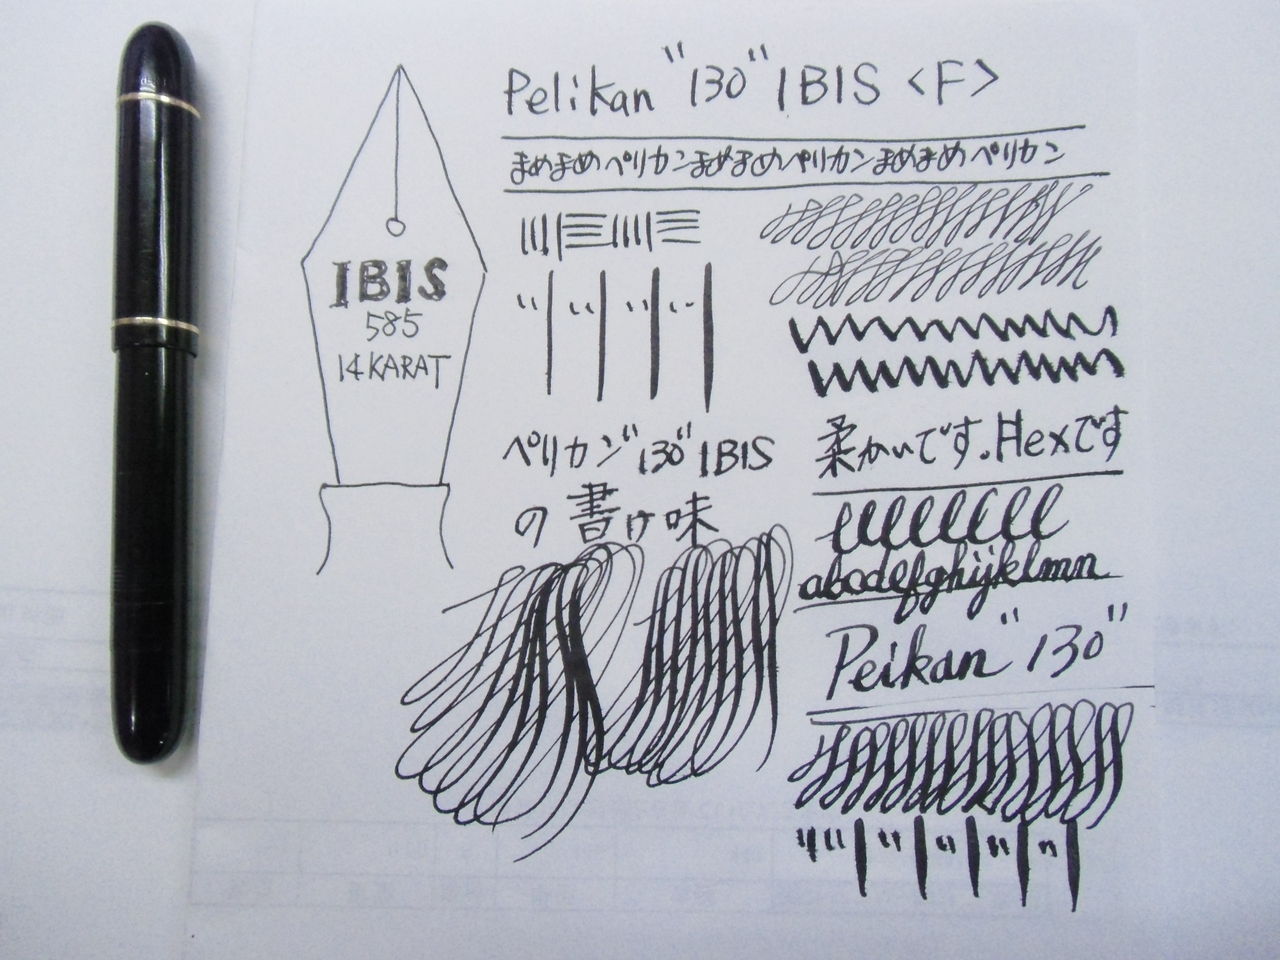 Pelikan "130" IBIS <F>
まめまめペリカンまめまめペリカンまめまめペリカン
IBIS
585
14 KARAT
ペリカン"130"IBIS
の書け味
柔かいです.Hexです
abcdefghijklmn
Peikan "130"